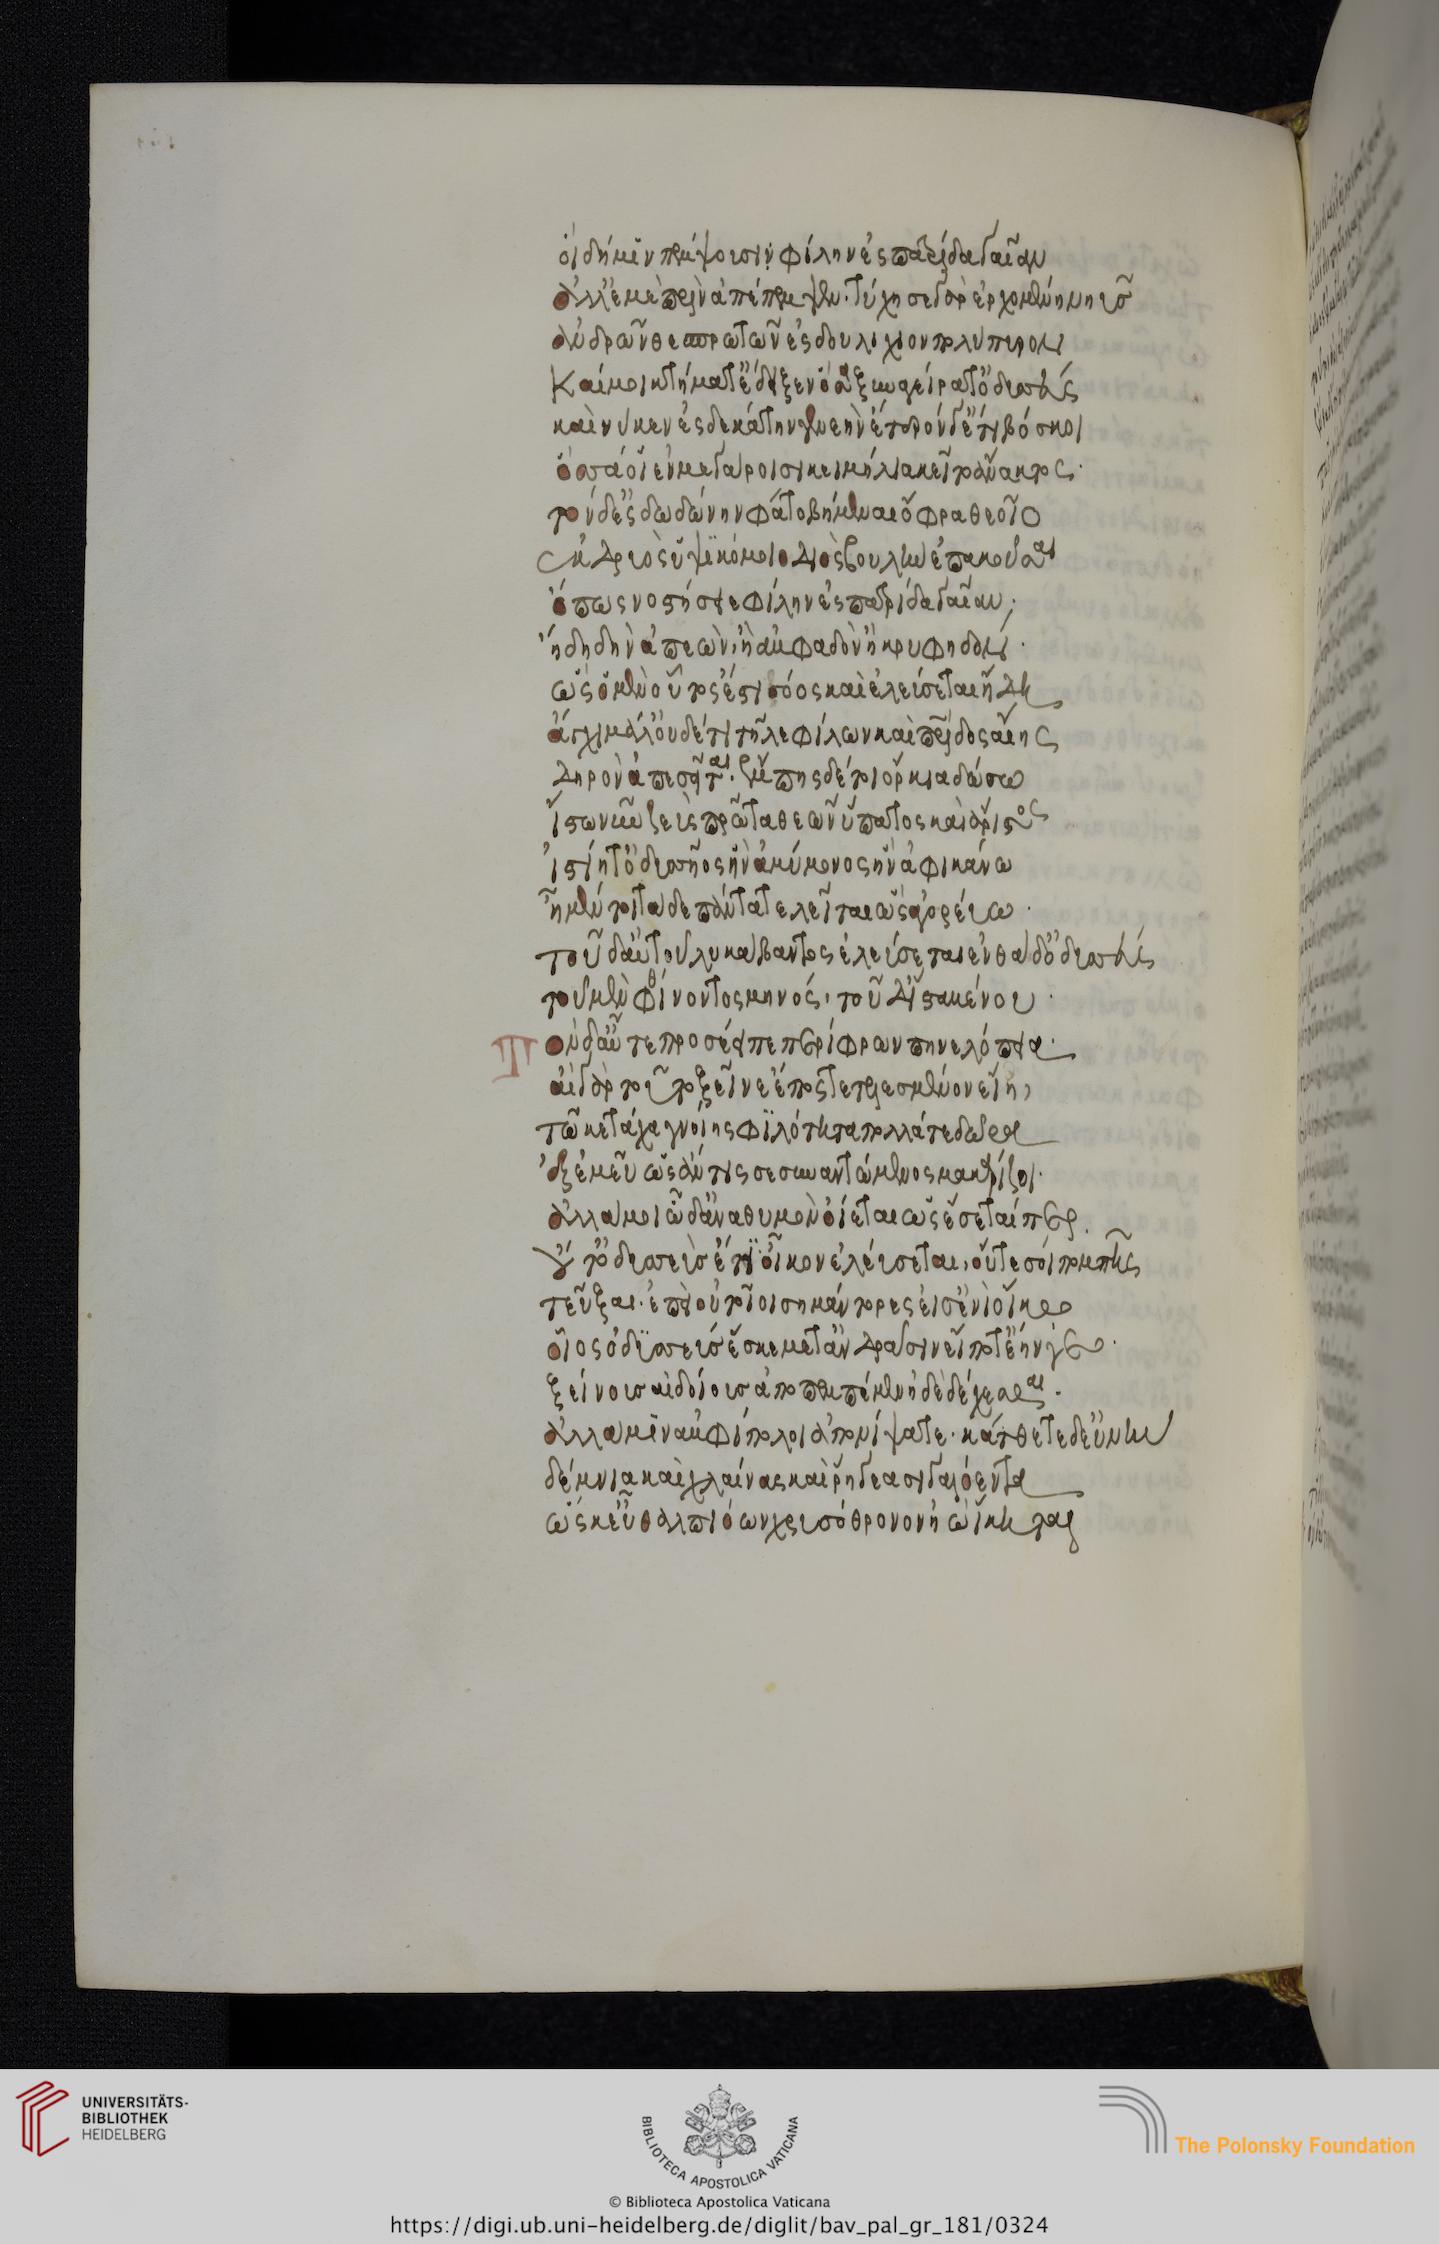 οἱ δή μιν πέμψουσι φίλην ἐς πατρίδα γαῖαν
ἀλλ' ἐμὲ πρὶν ἀπέπεμψεν. τύχησε γὰρ ἐρχομένη νηῦς
ἀνδρῶν θεσπρωτῶν ἐς δουλίχιον πολύπυρον
καί μοι κτήματ' ἔδειξεν ὅσα ξυναγείρατ' ὀδυσσεύς
καὶ νύ κεν ἐς δεκάτην γενεὴν ἕτερόν γ' ἔτι βόσκοι
ὅσσά οἱ ἐν μεγάροισι κειμήλια κεῖτο ἄνακτος.
τὸν δ' ἐς δωδώνην φάτο βήμεναι ὄφρα θεοῖο
ἐκ δρυὸς ὑψικόμοιο διὸς βουλὴν ἐπακούσαι
ὅπως νοστήσειε φίλην ἐς πατρίδα γαῖαν,
ἤδη δὴν ἀπεών, ἢ ἀμφαδὸν ἠὲ κρυφηδόν.
ὣς ὁ μὲν οὕτως ἐστὶ σόος καὶ ἐλεύσεται ἤδη
ἄγχι μάλ' οὐδέ τι τῆλε φίλων καὶ πατρίδος αἴης
δηρὸν ἀπεσσεῖται. ἔμπης δέ τοι ὅρκια δώσω
ἴστω νῦν ζεὺς πρῶτα θεῶν ὕπατος καὶ ἄριστος
ἱστίη τ' ὀδυσσῆος ἣν ἀμύμονος ἣν ἀφικάνω
ἦ μέν τοι τάδε πάντα τελείεται ὡς ἀγορεύω.
τοῦδ' αὐτοῦ λυκάβαντος ἐλεύσεται ἐνθάδ' ὀδυσσεύς
τοῦ μὲν φθίνοντος μηνός, τοῦ δ' ἱσταμένου.
τὸν δ' αὖτε προσέειπε περίφρων πηνελόπεια.
αἲ γὰρ τοῦτο ξεῖνε ἔπος τετελεσμένον εἴη,
τῶ κε τάχα γνοίης φιλότητα πολλά τε δῶρα
ἐξ ἐμεῦ ὡς ἄν τίς σε συναντώμενος μακαρίζοι.
ἀλλά μοι ὧδ' ἀνὰ θυμὸν ὀίεται ὡς ἔσεταί περ.
οὔτ' ὀδυσεὺς ἔτι οἶκον ἐλεύσεται, οὔτε σὺ πομπῆς
τεύξῃ. ἐπεὶ οὐ τοῖοι σημάντορες εἰσ' ἐνὶ οἴκῳ
οἷος ὀδυσσεὺς ἔσκε μετ' ἀνδράσιν εἴποτ' ἔην γε.
ξείνους αἰδοίους ἀποπεμπέμεν ἠδὲ δέχεσθαι.
ἀλλά μιν ἀμφίπολοι ἀπονίψατε. κάτθετε δ' εὐνήν
δέμνια καὶ χλαίνας καὶ ῥήγεα σιγαλόεντα
ὥς κ' εὖ θαλπιόων χρυσόθρονον ἠῶ ἵκηται
UNIVERSITÄTS-
BIBLIOTHEK
HEIDELBERG
BIBLIOTECA APOSTOLICA VATICANA
The Polonsky Foundation
© Biblioteca Apostolica Vaticana
https://digi.ub.uni-heidelberg.de/diglit/bav_pal_gr_181/0324